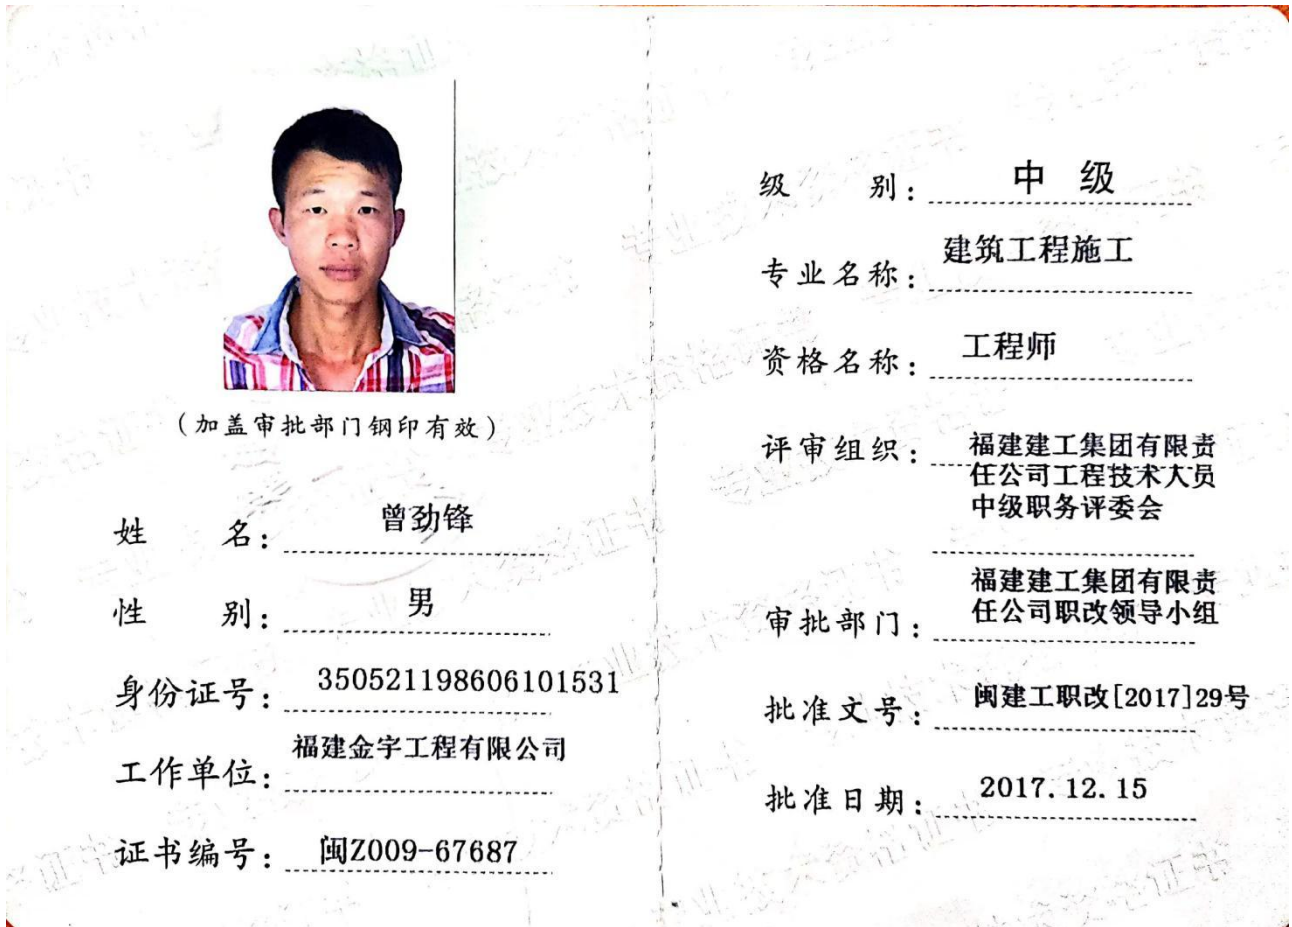 (加盖审批部门钢印有效)
姓 名: 曾劲锋
性 别: 男
身份证号: 350521198606101531
工作单位: 福建金宇工程有限公司
证书编号: 闽Z009-67687
级 别: 中 级
专业名称: 建筑工程施工
资格名称: 工程师
评审组织: 福建建工集团有限责
任公司工程技术人员
中级职务评委会
福建建工集团有限责
审批部门: 任公司职改领导小组
批准文号: 闽建工职改[2017]29号
批准日期: 2017.12.15